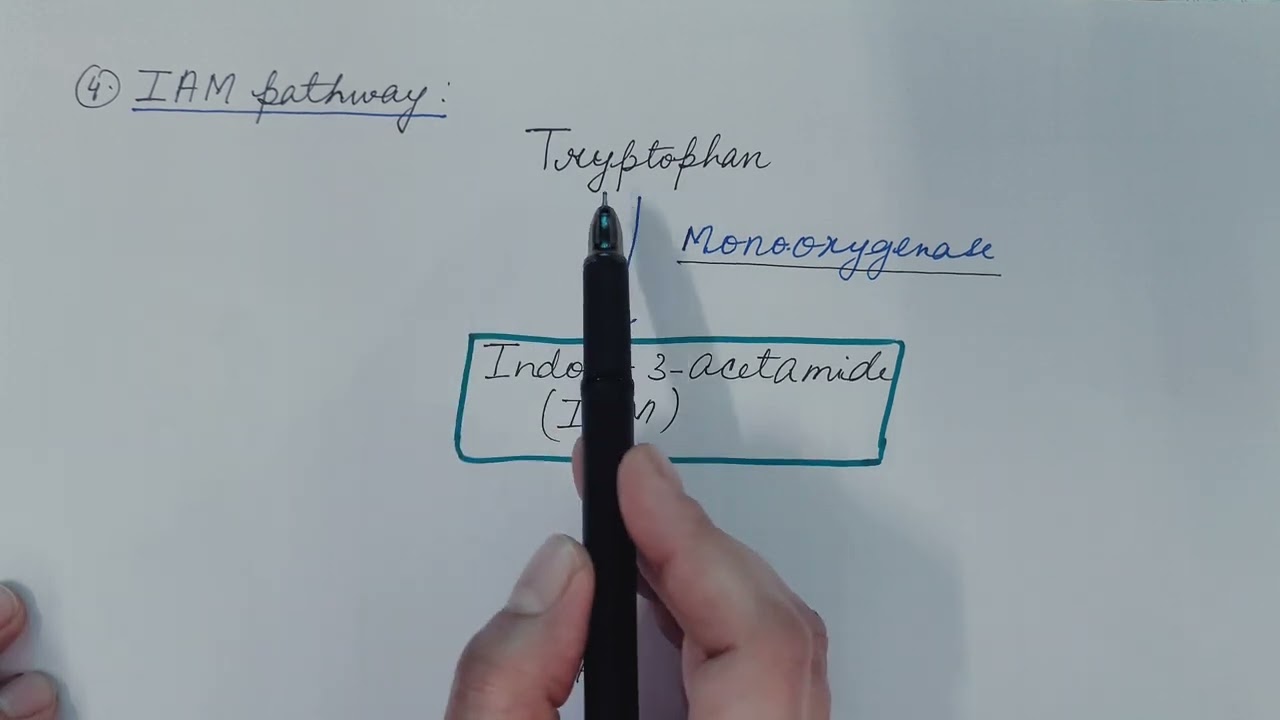 ④ IAM pathway:
Tryptophan
Monooxygenase
3-acetamide